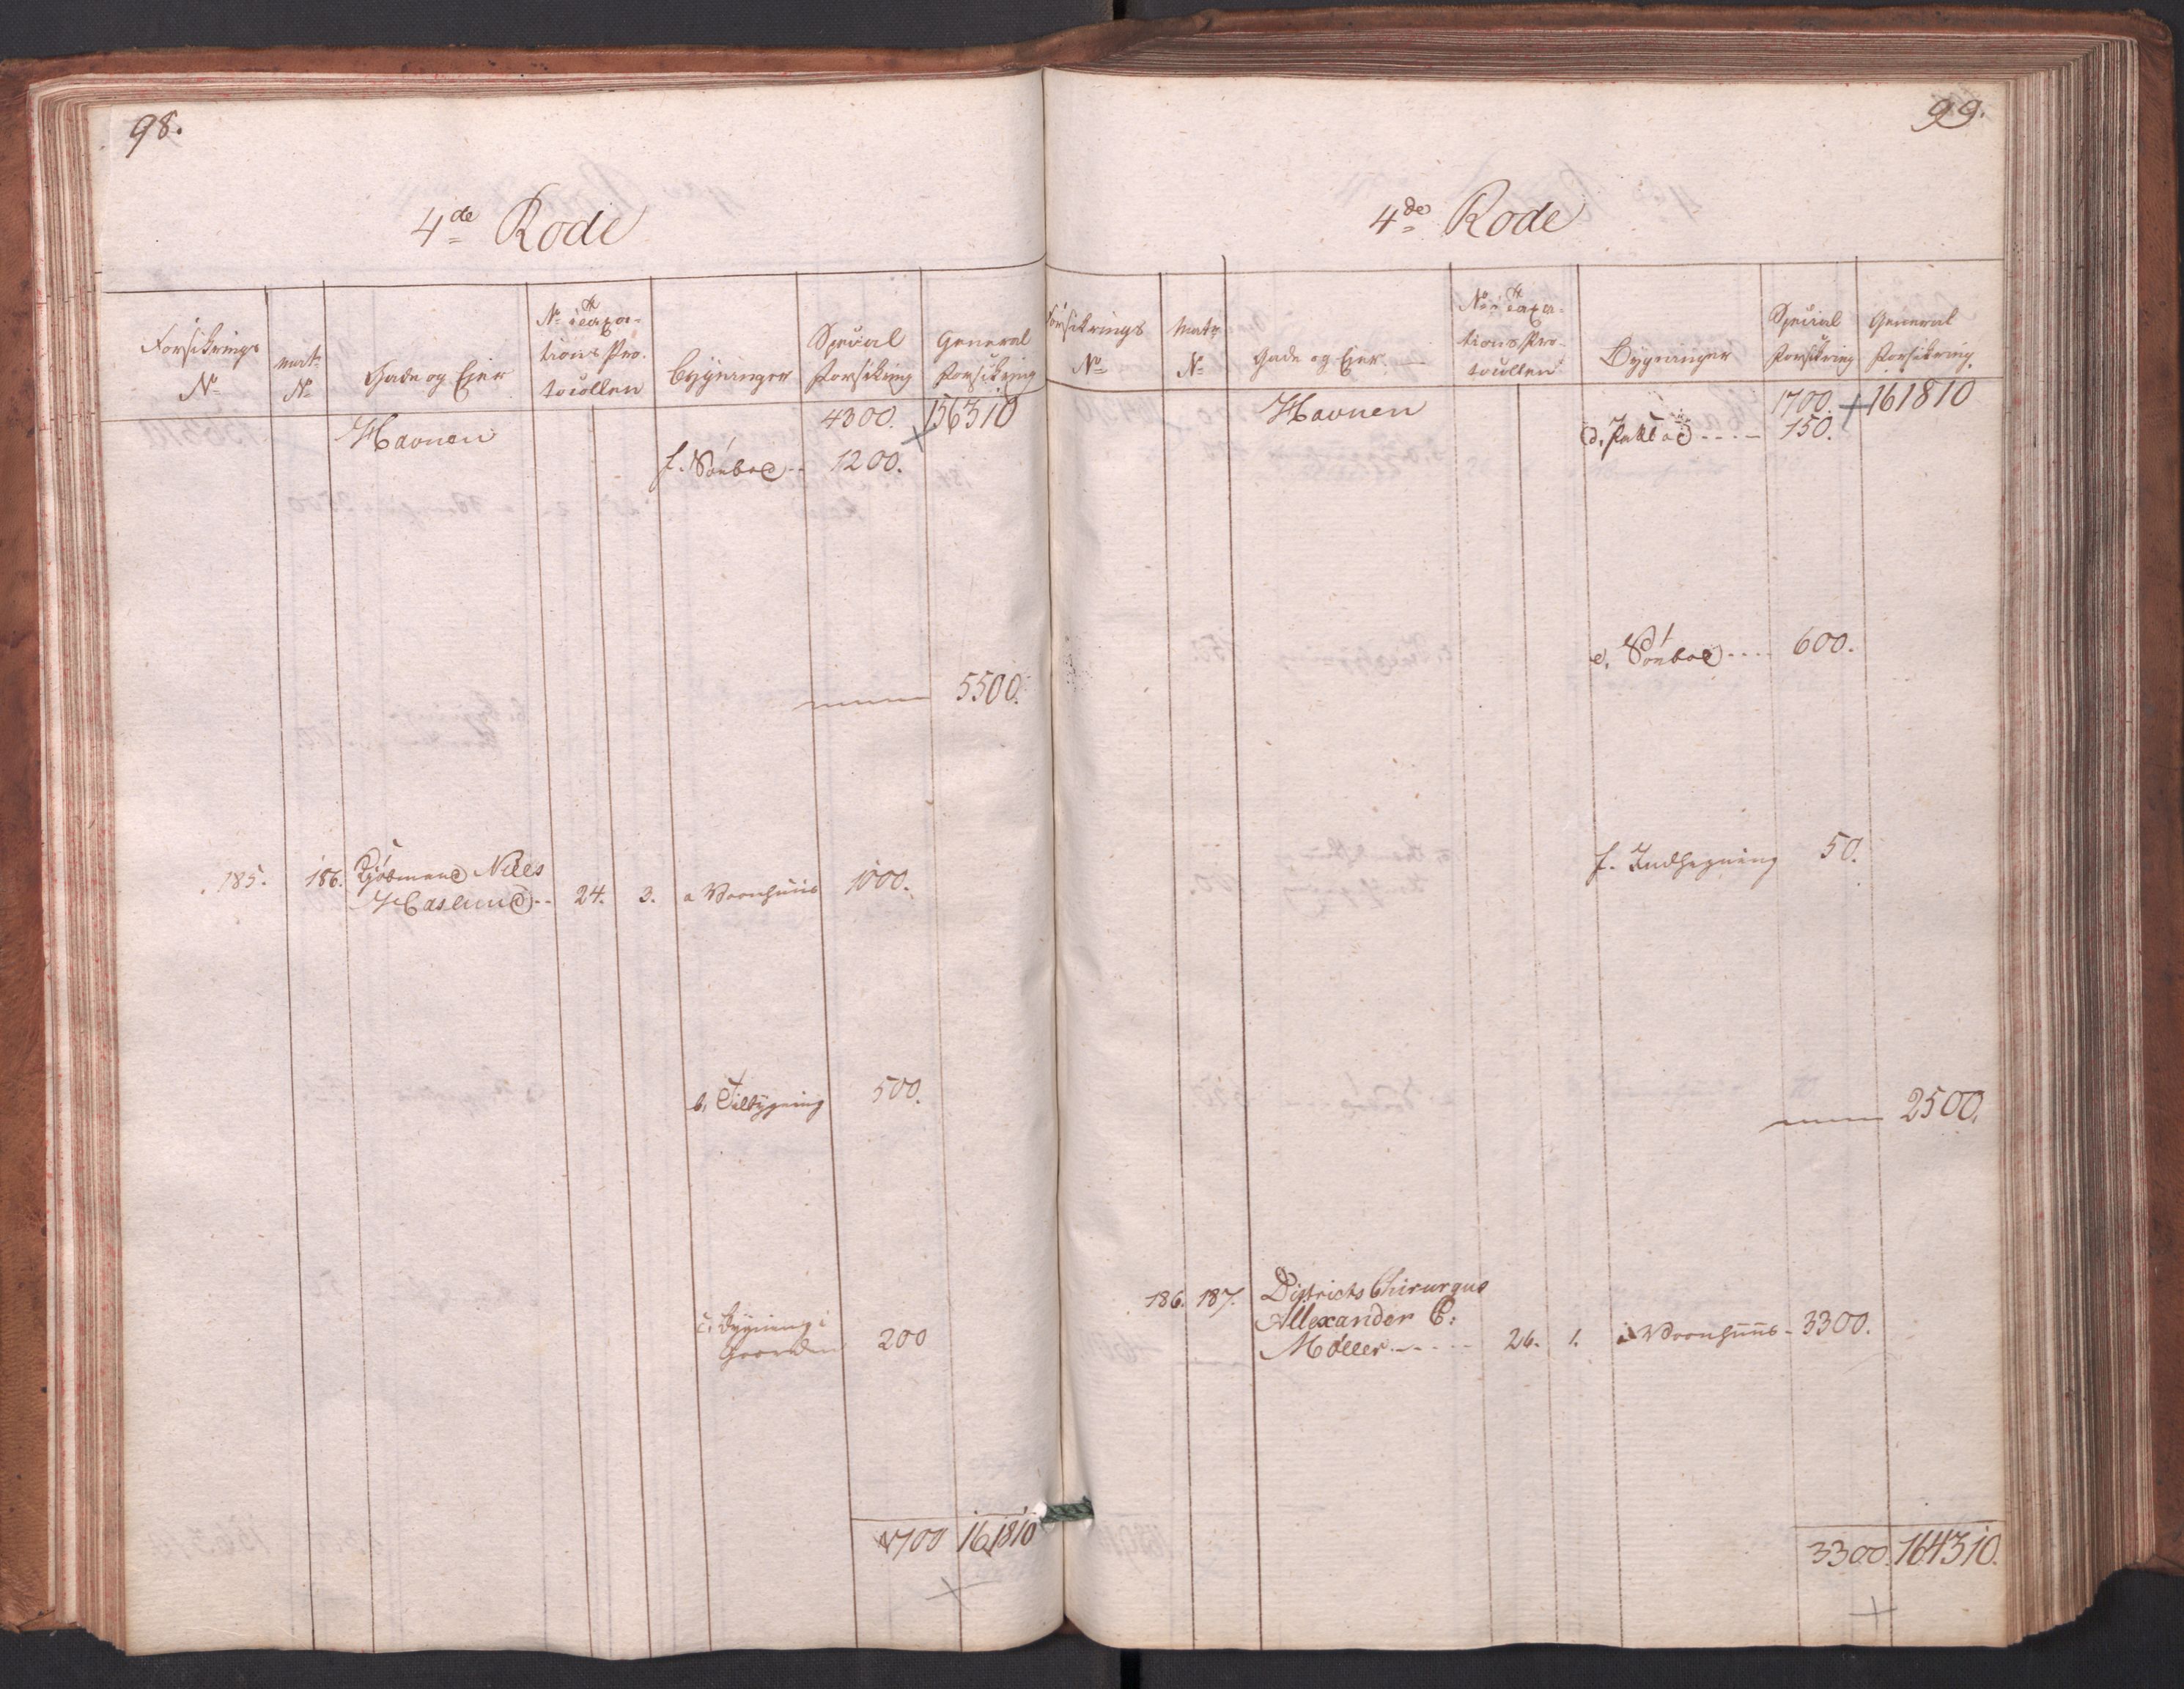 98.
4de Rode
Forsikrings No
Matr. No
Gade og Ejer
No i Taxations Protocollen
Bygninger
Special Forsikring
General Forsikring
Havnen
4300. 156310
f. Søeboe 1200.
5500.
185. 186. Kjøbmand Niels
Haslund 24. 3. a Vaanhuus 1000.
b. Tilbygning 500.
c. Bygning i
Gaarden 200
1700 161810
99.
4de Rode
Forsikrings No
Matr. No
Gade og Ejer
No i Taxations Protocollen
Bygninger
Special Forsikring
General Forsikring
Havnen
1700. 161810
d. Pakboe 150.
e. Søeboe 600.
f. Indhegning 50.
2500.
186. 187. Districts Chirurgus
Allexander C:
Møller 26. 1. a Vaanhuus 3300.
3300. 164310.